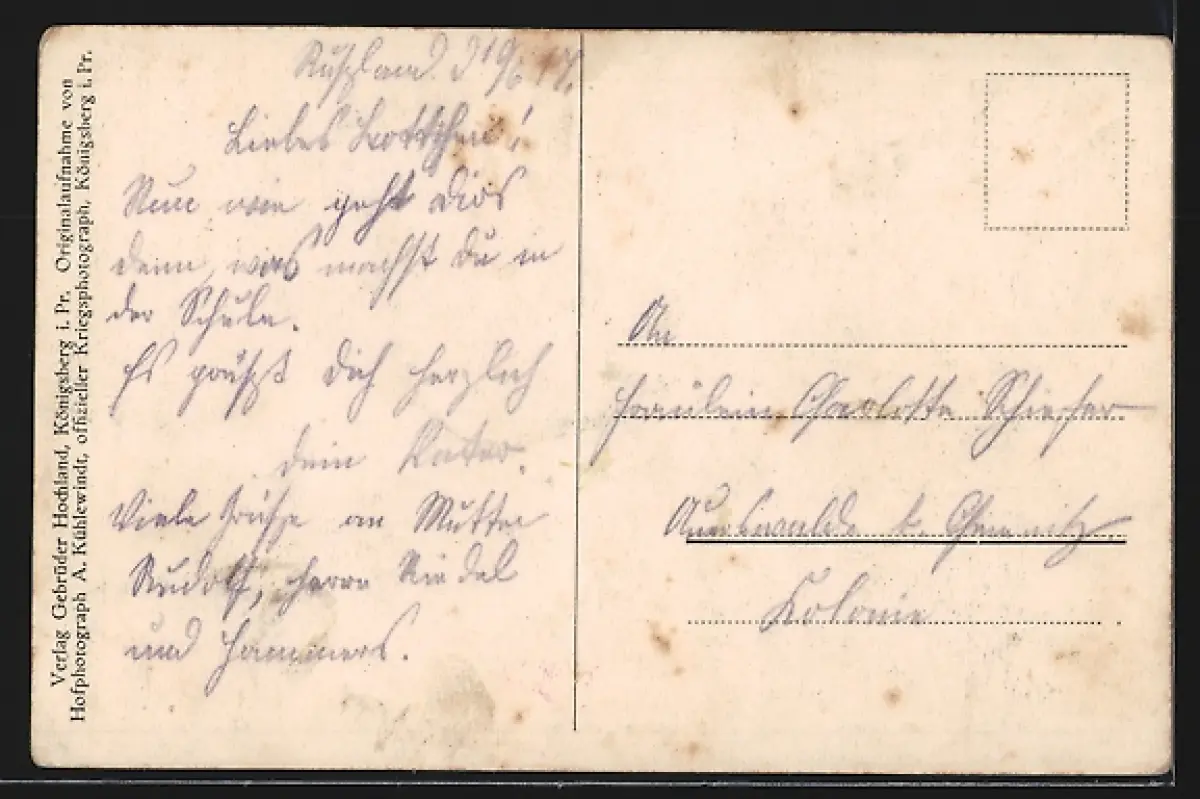 Verlag Gebrüder Hochland, Königsberg i. Pr. Originalaufnahme von
Hofphotograph A. Kühlewindt, offizieller Kriegsphotograph, Königsberg i. Pr.
Rußland. d 19/6 17.
Liebes Lottchen!
Nun wie geht Dirs
denn, was machst Du in
der Schule.
Es grüßt Dich herzlich
dein Vater.
Viele Grüße an Mutter
Rudolf, Herrn Riedel
und Hammers.
An
Fräulein Charlotte
Auerswalde b. Chemnitz
Kolonie